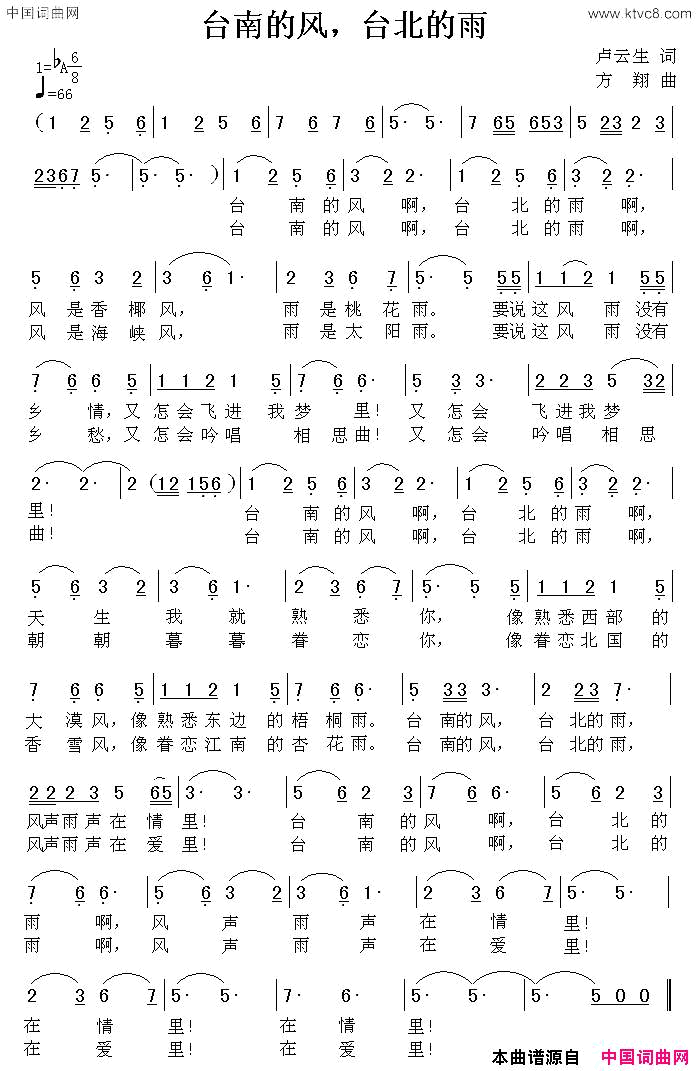 中国词曲网
台南的风，台北的雨
www.ktvc8.com
1=♭A 6/8
♩=66
卢云生 词
方 翔 曲
(1 2 5 6 | 1 2 5 6 | 7 6 7 6 | 5· 5· | 7 65 653 | 5 23 2 3 |
2367 5· | 5· 5· ) | 1 2 5 6 | 3 2 2· | 1 2 5 6 | 3 2 2· |
台 南 的 风 啊， 台 北 的 雨 啊，
台 南 的 风 啊， 台 北 的 雨 啊，
5 6 3 2 | 3 6 1· | 2 3 6 7 | 5· 5 55 | 1 1 2 1 55 |
风 是 香 椰 风， 雨 是 桃 花 雨。 要说 这 风 雨 没有
风 是 海 峡 风， 雨 是 太 阳 雨。 要说 这 风 雨 没有
7 6 6 5 | 1 1 2 1 5 | 7 6 6· | 5 3 3· | 2 2 3 5 32 |
乡 情，又 怎会飞进 我 梦 里！ 又 怎会 飞进我梦
乡 愁，又 怎会吟唱 相 思曲！ 又 怎会 吟唱 相思
2· 2· | 2 (12 156) | 1 2 5 6 | 3 2 2· | 1 2 5 6 | 3 2 2· |
里！ 台 南 的 风 啊， 台 北 的 雨 啊，
曲！ 台 南 的 风 啊， 台 北 的 雨 啊，
5 6 3 2 | 3 6 1· | 2 3 6 7 | 5· 5· | 1 1 2 1 5 |
天 生 我 就 熟 悉 你， 像 熟悉西部 的
朝 朝 暮 暮 眷 恋 你， 像 眷恋北国 的
7 6 6 5 | 1 1 2 1 5 | 7 6 6· | 5 33 3· | 2 23 7 |
大 漠风，像 熟悉东边 的 梧 桐雨。 台 南的风， 台 北的雨，
香 雪风，像 眷恋江南 的 杏 花雨。 台 南的风， 台 北的雨，
2 2 2 3 5 65 | 3· 3· | 1 2 5 6 | 3 2 2· | 1 2 5 6 |
风声雨声在 情 里！ 台 南 的 风 啊， 台 北 的
风声雨声在 爱 里！ 台 南 的 风 啊， 台 北 的
7 6 6· | 5 6 3 2 | 3 6 1· | 2 3 6 7 | 5· 5· |
雨 啊， 风 声 雨 声 在 情 里！
雨 啊， 风 声 雨 声 在 爱 里！
2 3 6 7 | 5· 5· | 2 3 6 7 | 5· 5· | 5· 5· | 5 0 0 ||
在 情 里！ 在 情 里！
在 爱 里！ 在 爱 里！
本曲谱源自 中国词曲网